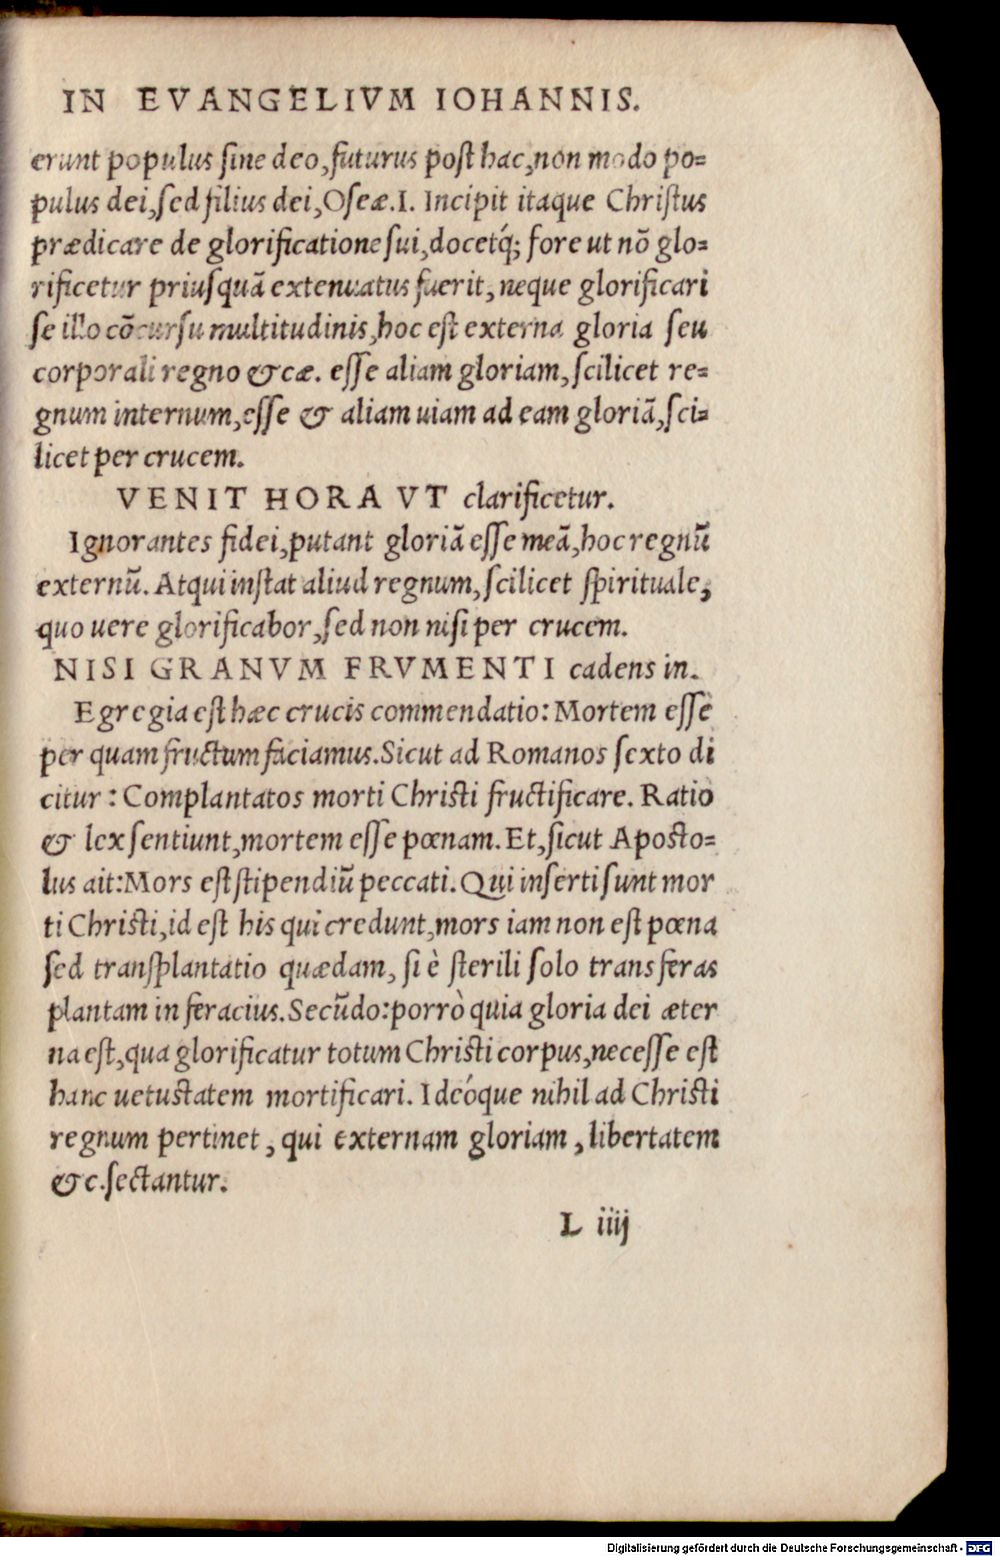 IN EVANGELIVM IOHANNIS.
erunt populus sine deo, futurus post hac, non modo po=
pulus dei, sed filius dei, Oseæ. I. Incipit itaque Christus
prædicare de glorificatione sui, docetq́; fore ut nō glo=
rificetur priusquã extenuatus fuerit, neque glorificari
se illo cōcursu multitudinis, hoc est externa gloria seu
corporali regno &cæ. esse aliam gloriam, scilicet re=
gnum internum, esse & aliam uiam ad eam gloriã, sci=
licet per crucem.
VENIT HORA VT clarificetur.
Ignorantes fidei, putant gloriã esse meã, hoc regnū
externū. Atqui instat aliud regnum, scilicet spirituale,
quo uere glorificabor, sed non nisi per crucem.
NISI GRANVM FRVMENTI cadens in.
Egregia est hæc crucis commendatio: Mortem esse
per quam fructum faciamus. Sicut ad Romanos sexto di
citur: Complantatos morti Christi fructificare. Ratio
& lex sentiunt, mortem esse pœnam. Et, sicut Aposto=
lus ait: Mors est stipendiū peccati. Qui inserti sunt mor
ti Christi, id est his qui credunt, mors iam non est pœna
sed transplantatio quædam, si è sterili solo transferas
plantam in feracius. Secūdo: porrò quia gloria dei æter
na est, qua glorificatur totum Christi corpus, necesse est
hanc uetustatem mortificari. Ideóque nihil ad Christi
regnum pertinet, qui externam gloriam, libertatem
&c. sectantur.
L iiij
Digitalisierung gefördert durch die Deutsche Forschungsgemeinschaft - DFG